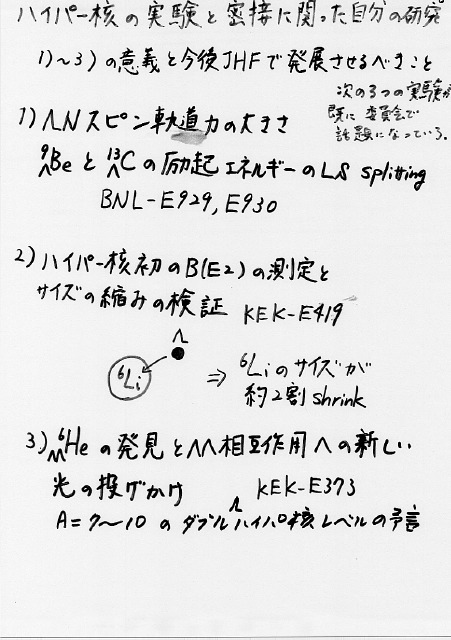 ハイパー核の実験と密接に関った自分の研究
1)~3)の意義と今後JHFで発展させるべきこと
次の3つの実験が
既に委員会で
話題になっている。
1) ΛNスピン軌道力の大きさ
⁹ΛBeと¹³ΛCの励起エネルギーのLS splitting
BNL-E929, E930
2) ハイパー核初のB(E2)の測定と
サイズの縮みの検証 KEK-E419
Λ
⁶Li
⇒ ⁶Liのサイズが
約2割 shrink
3) ΛΛ⁶Heの発見とΛΛ相互作用への新しい
光の投げかけ KEK-E373
A=7~10のダブルΛハイパー核レベルの予言